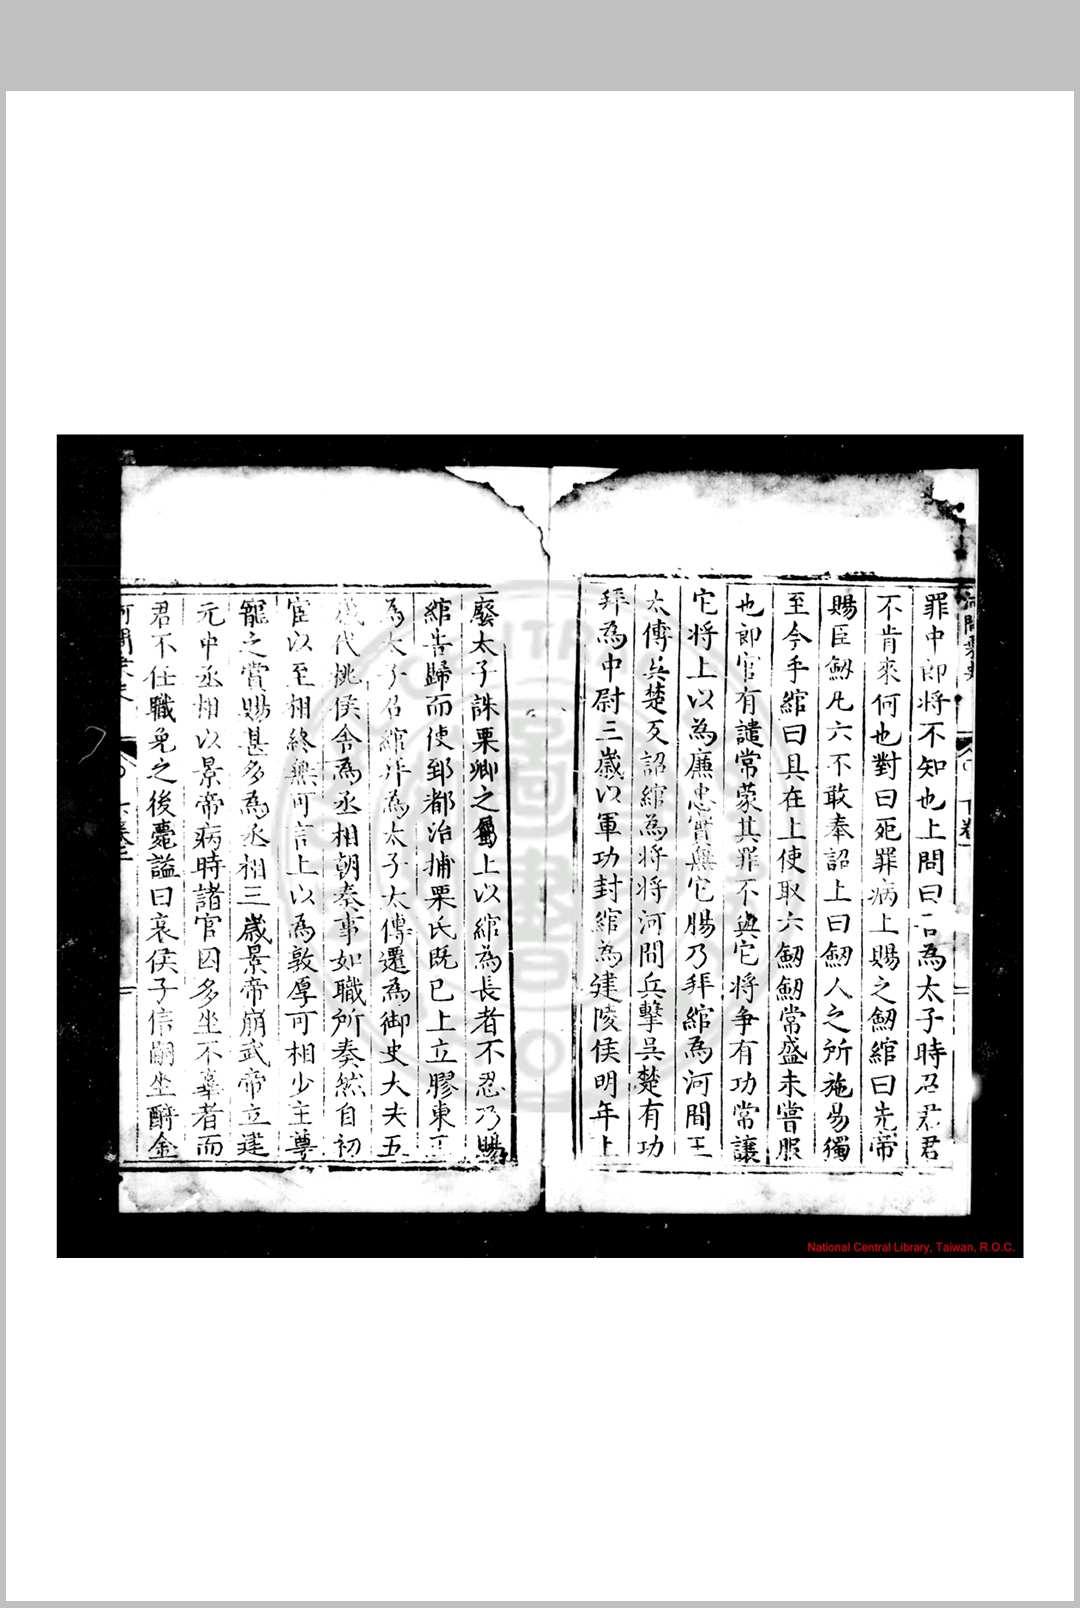 罪中郎將不知也上問曰吾為太子時召君君
不肯來何也對曰死罪病上賜之劒綰曰先帝
賜臣劒凡六不敢奉詔上曰劒人之所施易獨
至今乎綰曰具在上使取六劒劒常盛未嘗服
也郎官有譴常蒙其罪不與它將争有功常讓
它將上以為廉忠實無它腸乃拜綰為河間王
太傅吳楚反詔綰為將將河間兵擊吳楚有功
拜為中尉三歲以軍功封綰為建陵侯明年上
廢太子誅栗卿之屬上以綰為長者不忍乃賜
綰告歸而使郅都治捕栗氏既已上立膠東王
為太子召綰拜為太子太傅遷為御史大夫五
歲代桃侯舍為丞相朝奏事如職所奏然自初
宦以至相終無可言上以為敦厚可相少主尊
寵之賞賜甚多為丞相三歲景帝崩武帝立建
元中丞相以景帝病時諸官囚多坐不辜者而
君不任職免之後薨謚曰哀侯子信嗣坐酎金
National Central Library, Taiwan, R.O.C.